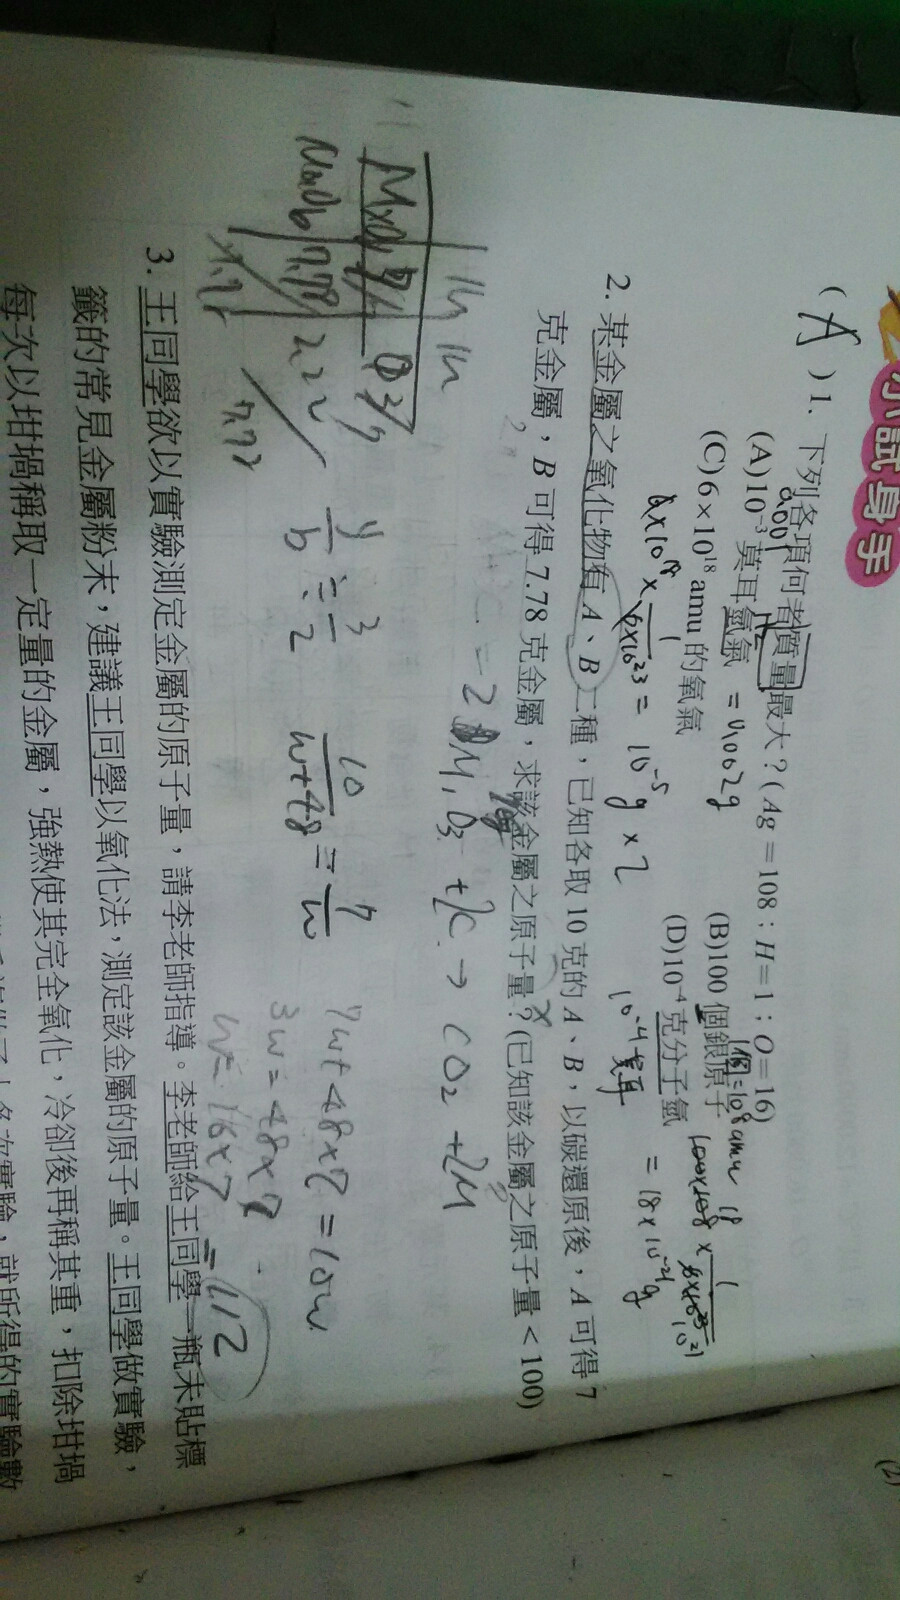 小試身手
(A) 1. 下列各項何者質量最大？(Ag=108；H=1；O=16)
(A)10⁻³莫耳氫氣 = 0.002g
(B)100 個銀原子
1個=108amu
(C)6×10¹⁸ amu 的氧氣
(D)10⁻⁴克分子氫
6×10¹⁸ × 1/6×10²³ = 10⁻⁵g × 2
10⁻⁴莫耳
= 18×10⁻²¹g
2. 某金屬之氧化物有 A、B 二種，已知各取 10 克的 A、B，以碳還原後，A 可得 7
克金屬，B 可得 7.78 克金屬，求該金屬之原子量？(已知該金屬之原子量 < 100)
+2C → CO₂ +2M
10/w+48 = 7/w
7w+48×7=10w
3w=48×7
w=16×7=112
3. 王同學欲以實驗測定金屬的原子量，請李老師指導。李老師給王同學一瓶未貼標
籤的常見金屬粉末，建議王同學以氧化法，測定該金屬的原子量。王同學做實驗，
每次以坩堝稱取一定量的金屬，強熱使其完全氧化，冷卻後再稱其重，扣除坩堝
(2)